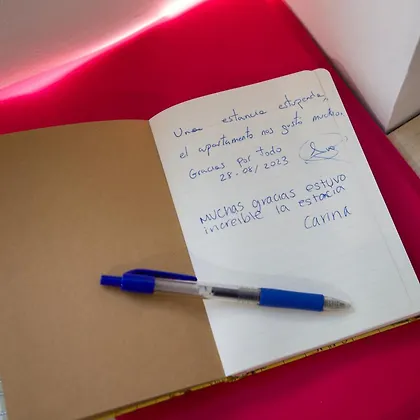 Una estancia estupenda,
el apartamento nos gustó mucho.
Gracias por todo
28.08/2023
Muchas gracias estuvo
increíble la estacia
Carina